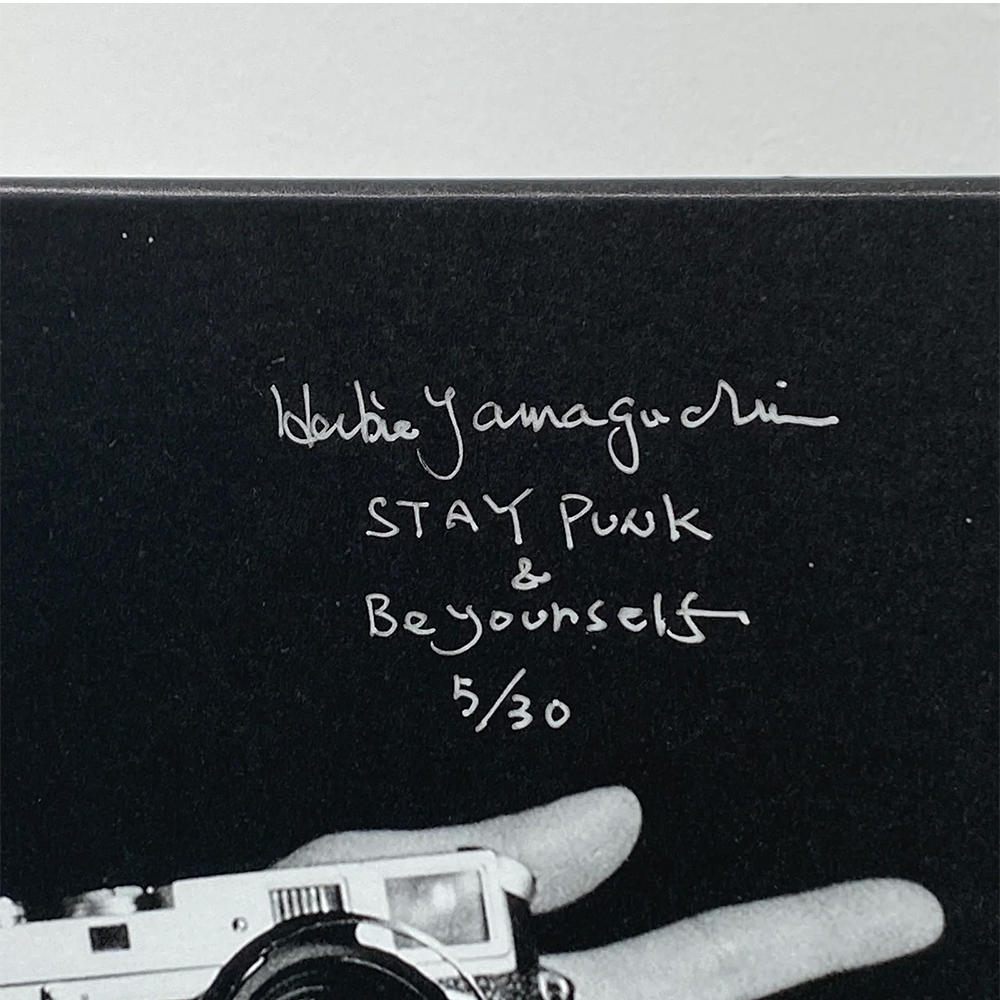 Herbie Yamaguchi
STAY PUNK
&
Be yourself
5/30